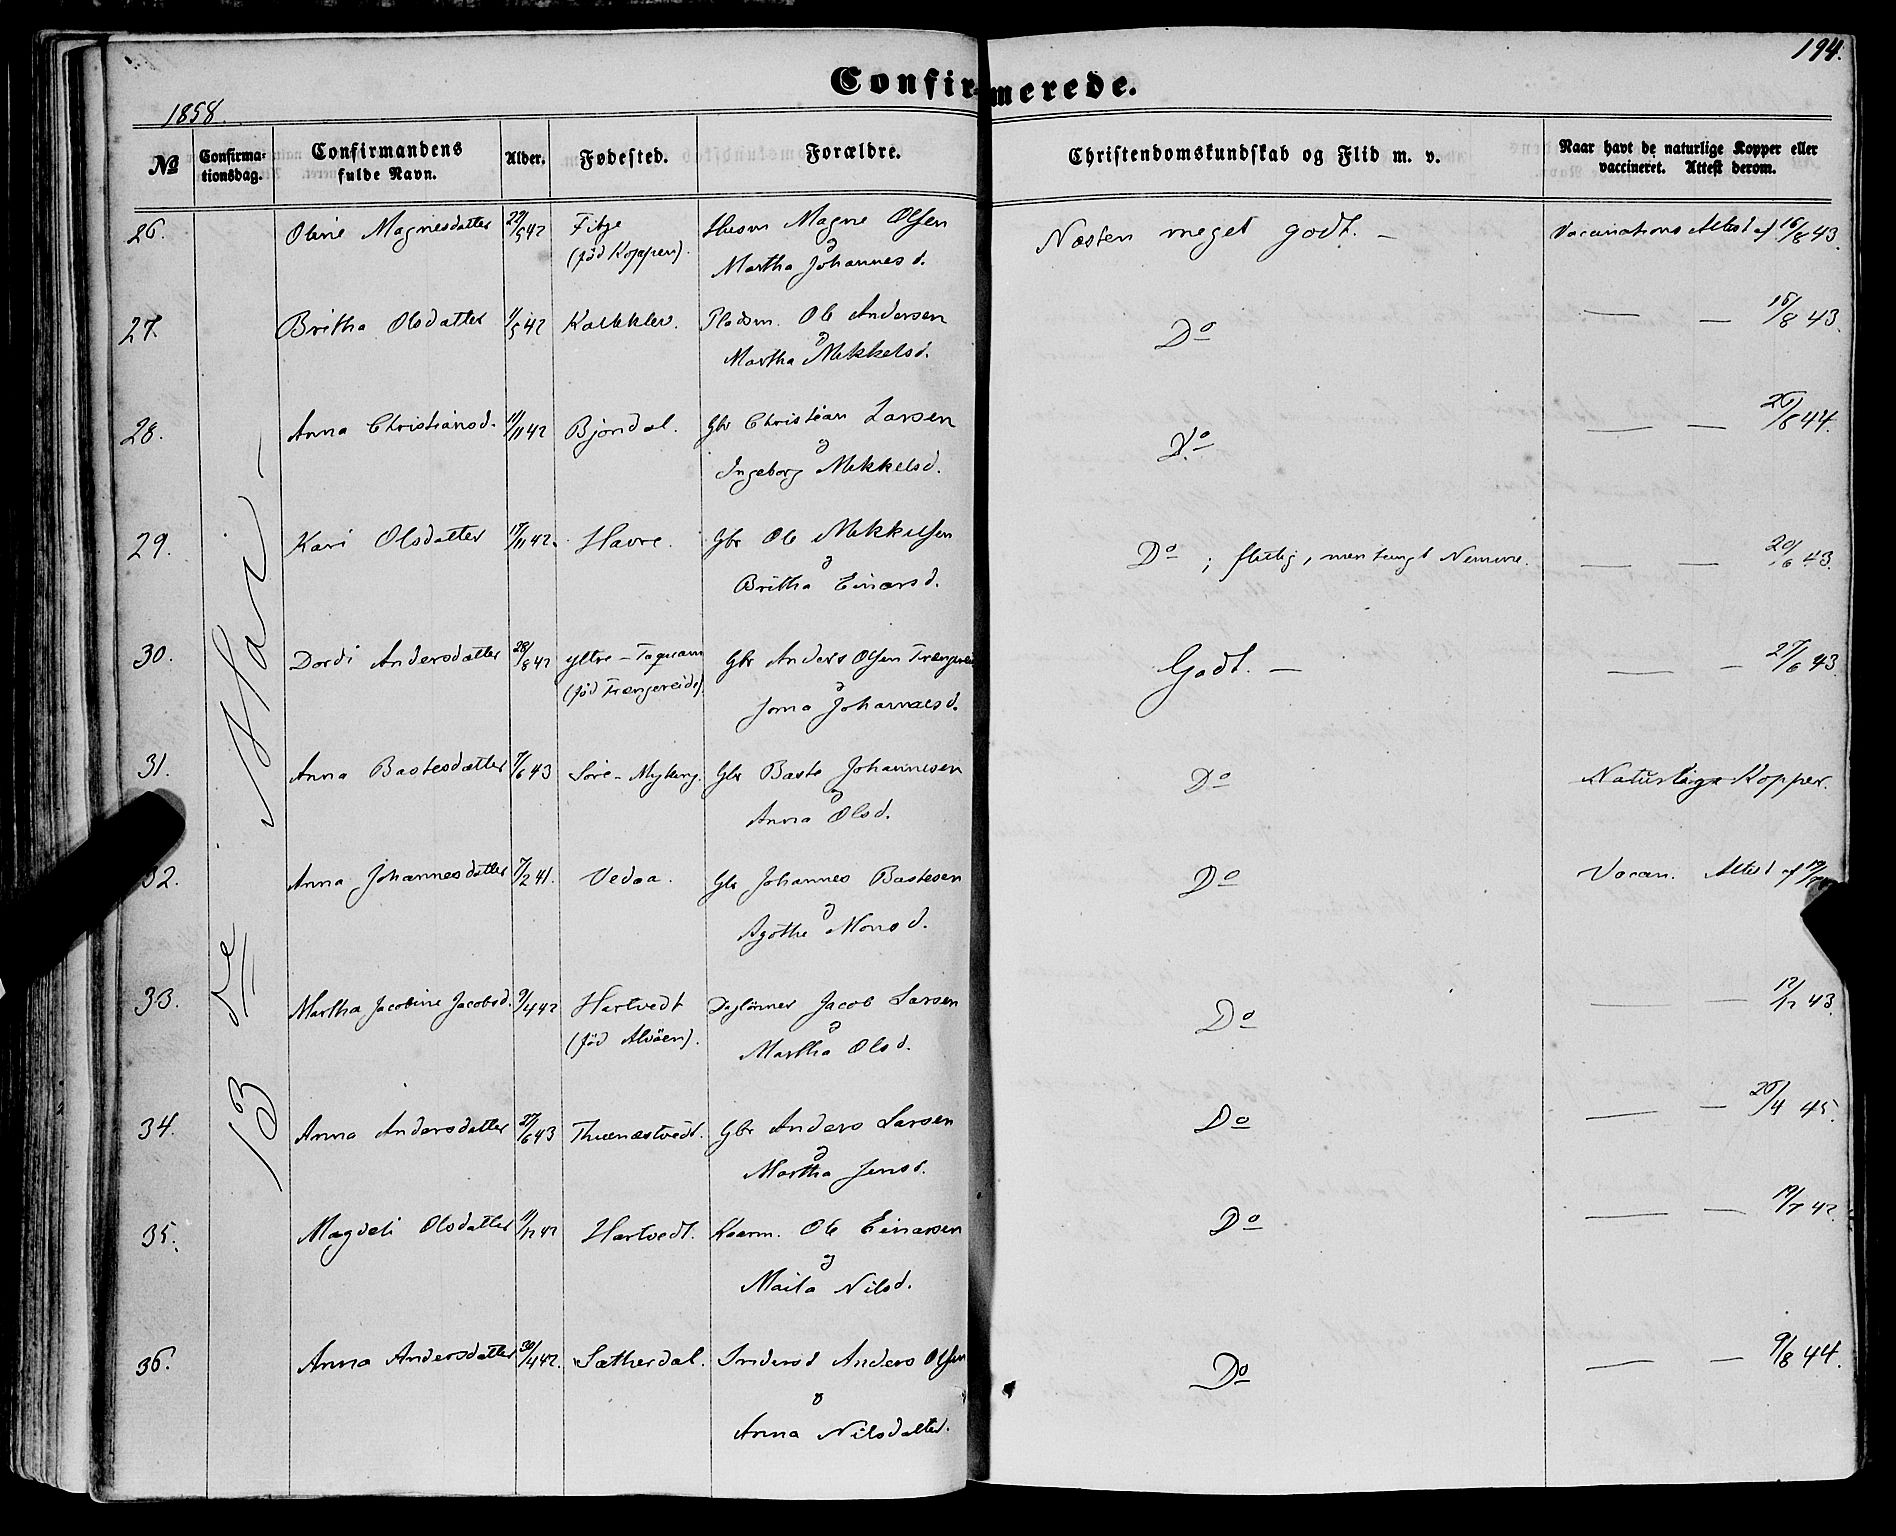 194.
Confirmerede.
1858.
No Confirmationsdag. Confirmandens fulde Navn. Alder. Fødested. Forældre. Christendomskundskab og Flid m. v. Naar havt de naturlige Kopper eller vaccineret. Attest derom.
13de Mai
26. Oline Magnesdatter 22/5 42 Fitje Husm Magne Olsen Næsten meget godt. — Vaccinations Attest af 16/8 43.
(fød Koppen). & Martha Johannesd.
27. Britha Olsdatter 1/5 42 Pladsm. Ole Andersen Do — — 16/8 43.
& Martha Mikkelsd.
28. Anna Christiansd. 11/11 42 Bjørndal. Gbr Christian Larsen Do — — 26/8 44.
& Ingeborg Mikkelsd.
29. Kari Olsdatter 17/11 42. Havre. Gbr Ole Mikkelsen Do ; flittig, men tungt Nemme. — — 20/6 43.
& Britha Einarsd.
30. Dordi Andersdatter 28/8 42 Ytre-Taquam Gbr Anders Olsen Trængereid Godt. — — — 27/6 43.
(fød Trængereide) & Johannesd.
31. Anna Bastesdatter 7/6 43 Søre-Myking. Gbr Baste Johannesen Do Naturlige Kopper.
& Anna Olsd.
32. Anna Johannesdatter 7/2 41. Vedaa. Gbr Johannes Bastesen Do Vaccin. Attest af
& Agathe Monsd.
33. Martha Jacobine Jacobsd. 9/4 42 Hartvedt Daglönner Jacob Larsen Do — — 12/12 43.
(fød Alvöen). & Martha Olsd.
34. Anna Andersdatter 27/6 43 Thunæstvedt. Gbr Anders Larsen Do — — 26/4 45.
& Martha Jensd.
35. Magdeli Olsdatter 11/12 42 Hartvedt. Kaarm. Ole Einarsen Do — — 19/7 42.
& Marta Nilsd.
36. Anna Andersdatter 30/4 42. Sætherdal. Inderst Anders Olsen Do — — 9/8 44.
& Anna Nilsdatter.